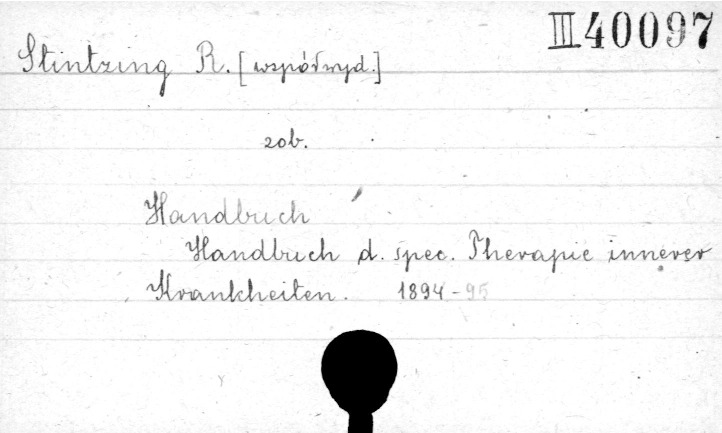 III 40097
Stintzing R. [współwyd.]
zob.
Handbuch
Handbuch d. spec. Therapie innerer
Krankheiten. 1894-95